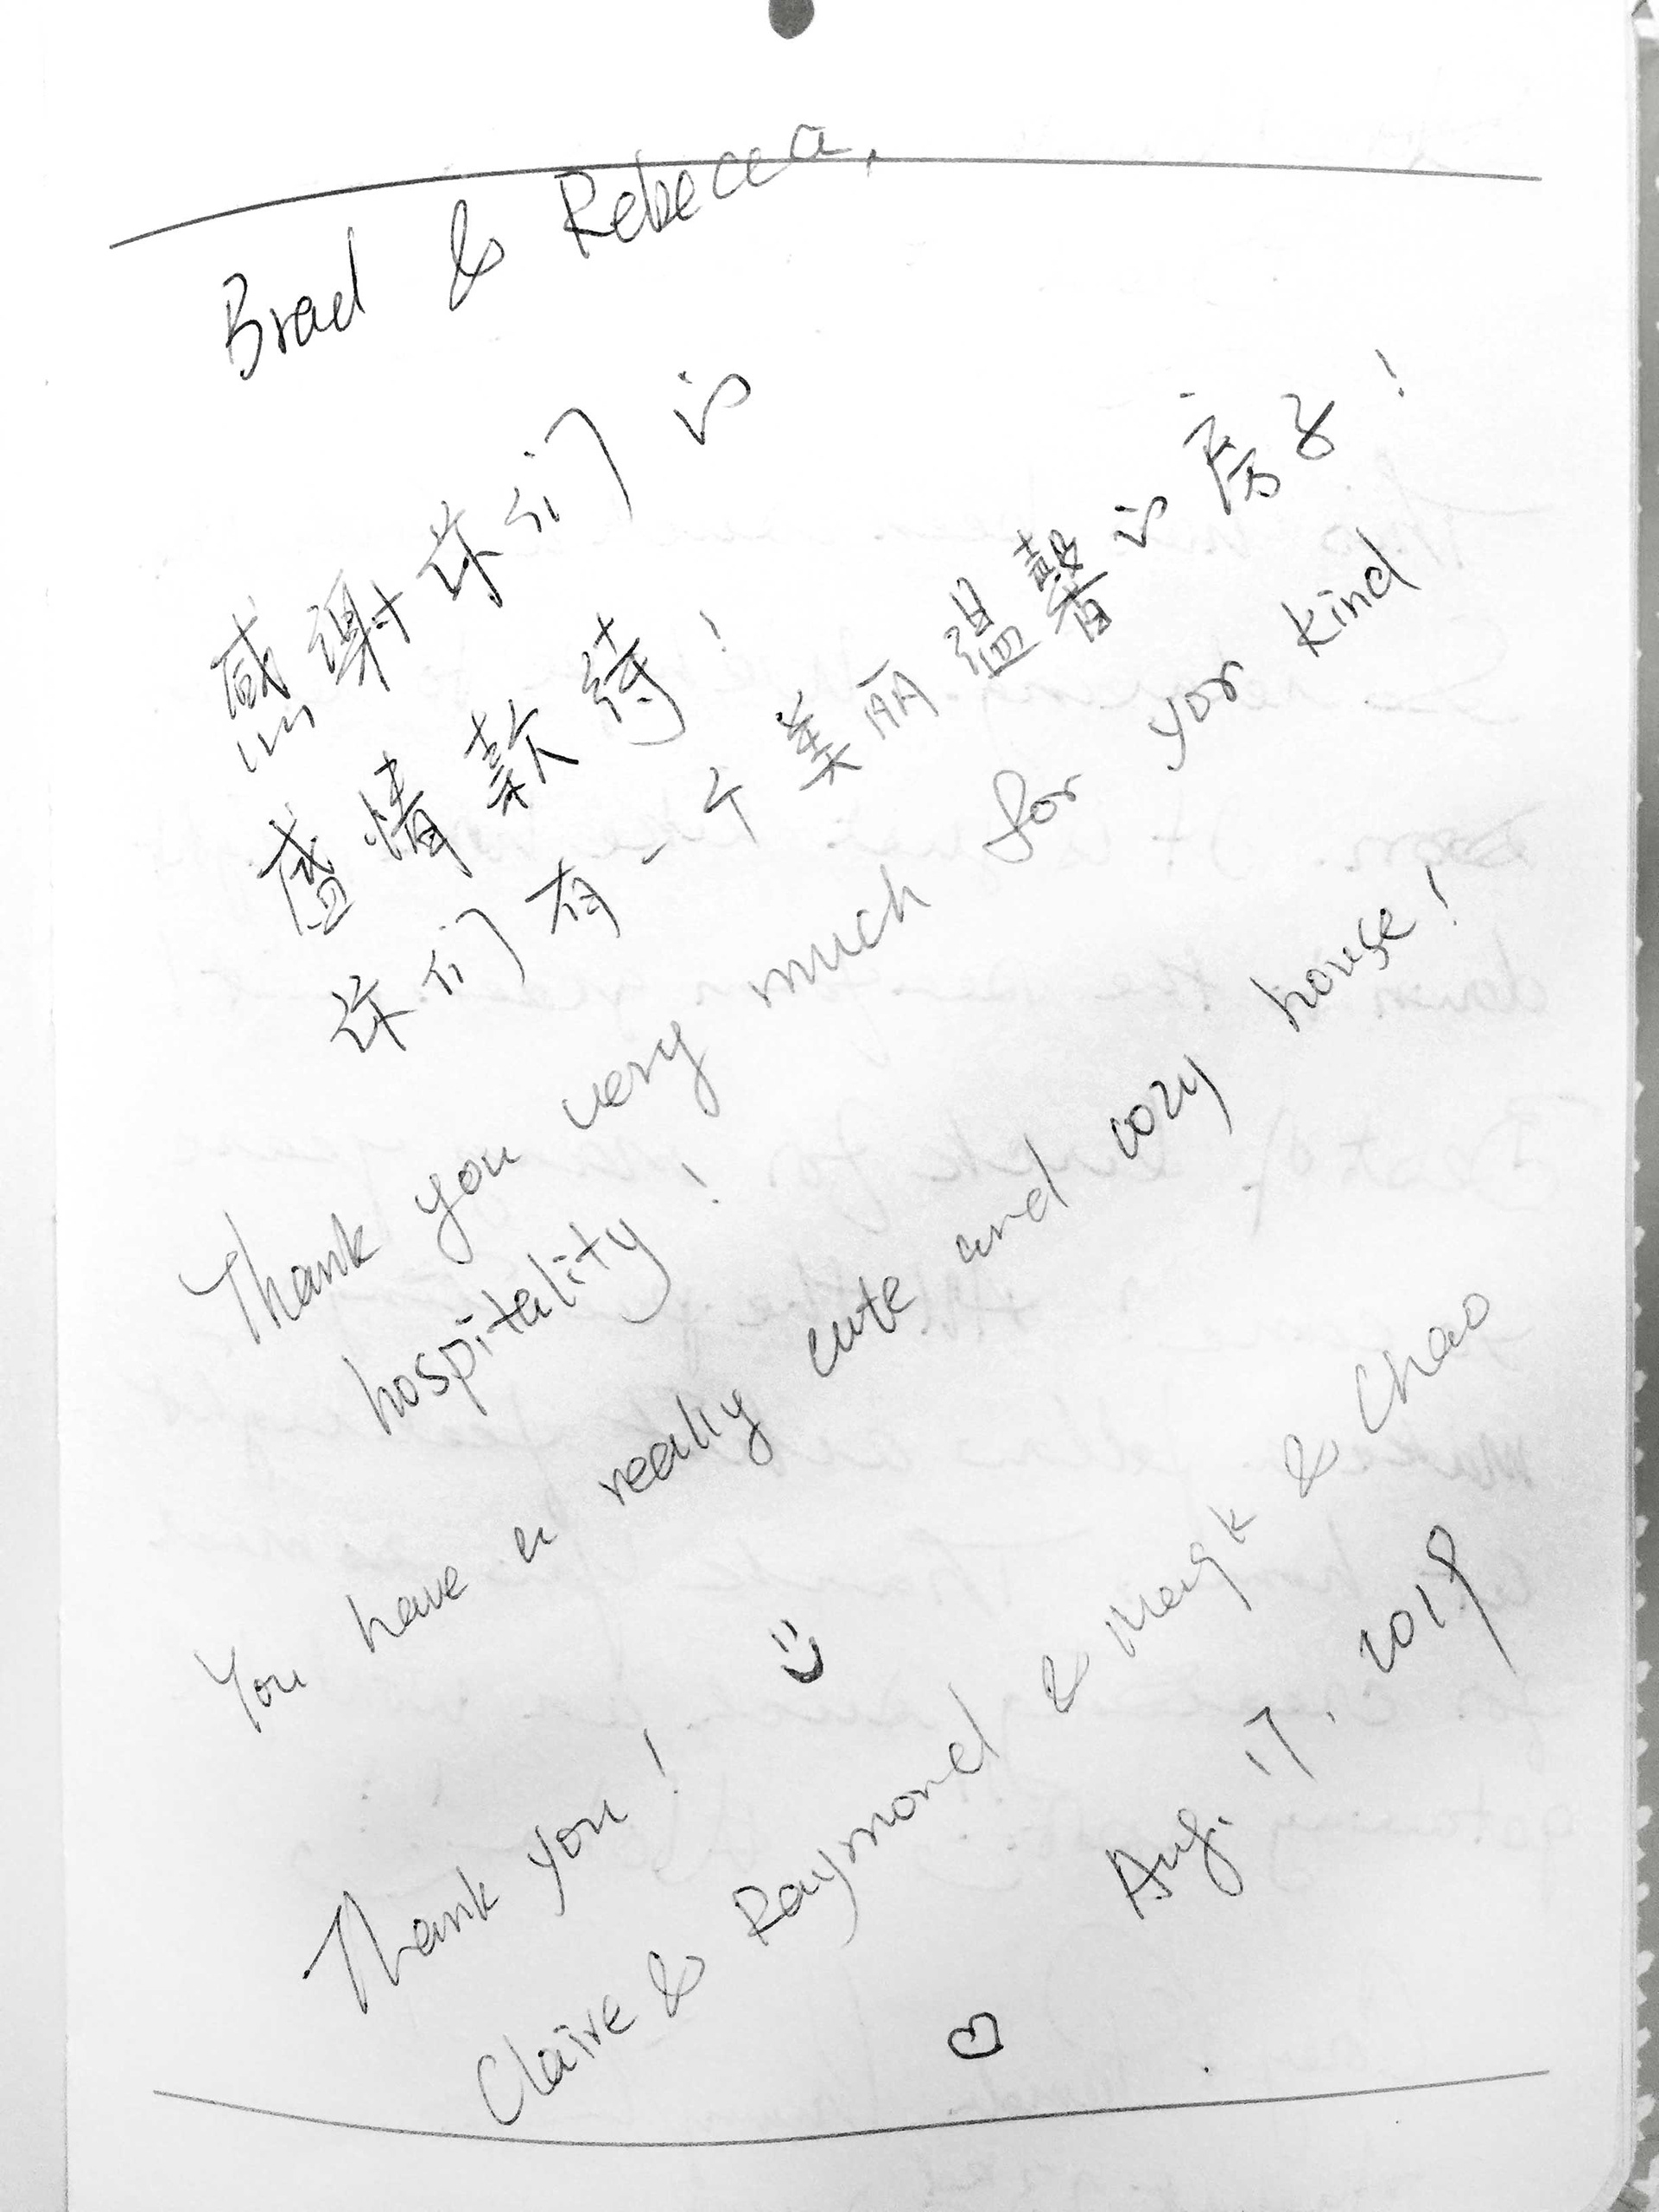 Brad & Rebecca,
感谢你们的
盛情款待！
你们有一个美丽温馨的房子！
Thank you very much for yor kind
hospitality!
You have a really cute and cozy house!
Thank you!
Claire & Raymond & & Chao
Aug. 17, 2019